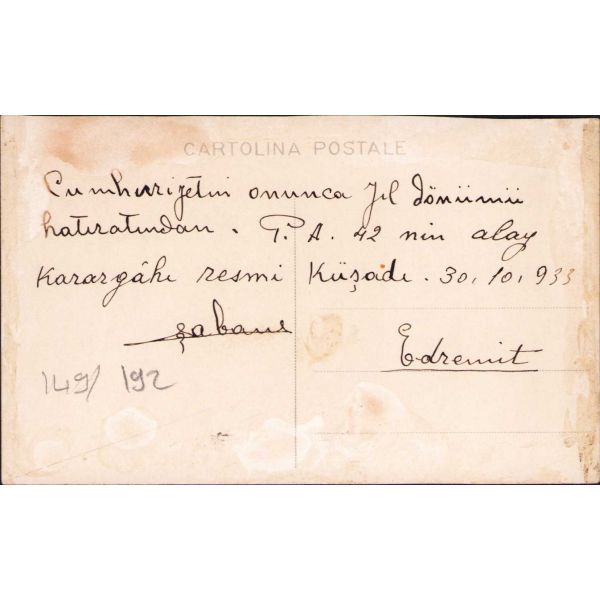 CARTOLINA POSTALE
Cumhuriyetin onunca yıl dönümü
hatıratından. P. A. 42 nin alay
Karargâhı resmi Küşadı. 30.10.933
Şaban
Edremit
149/ 192